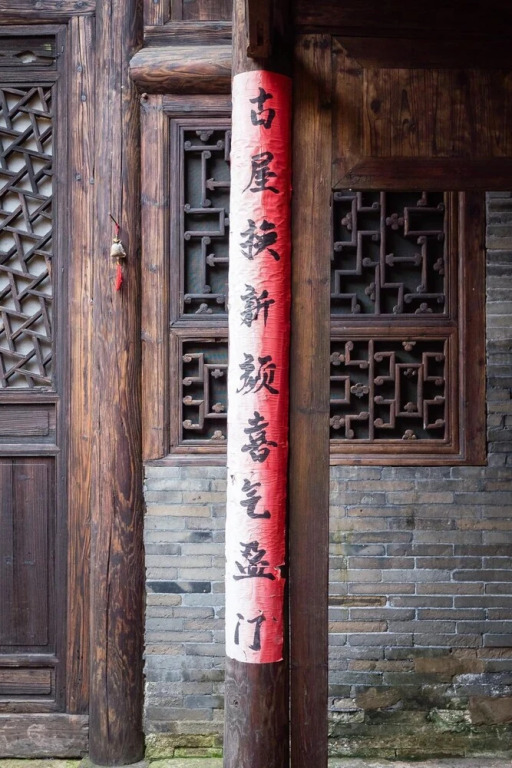 古屋换新颜喜气盈汀